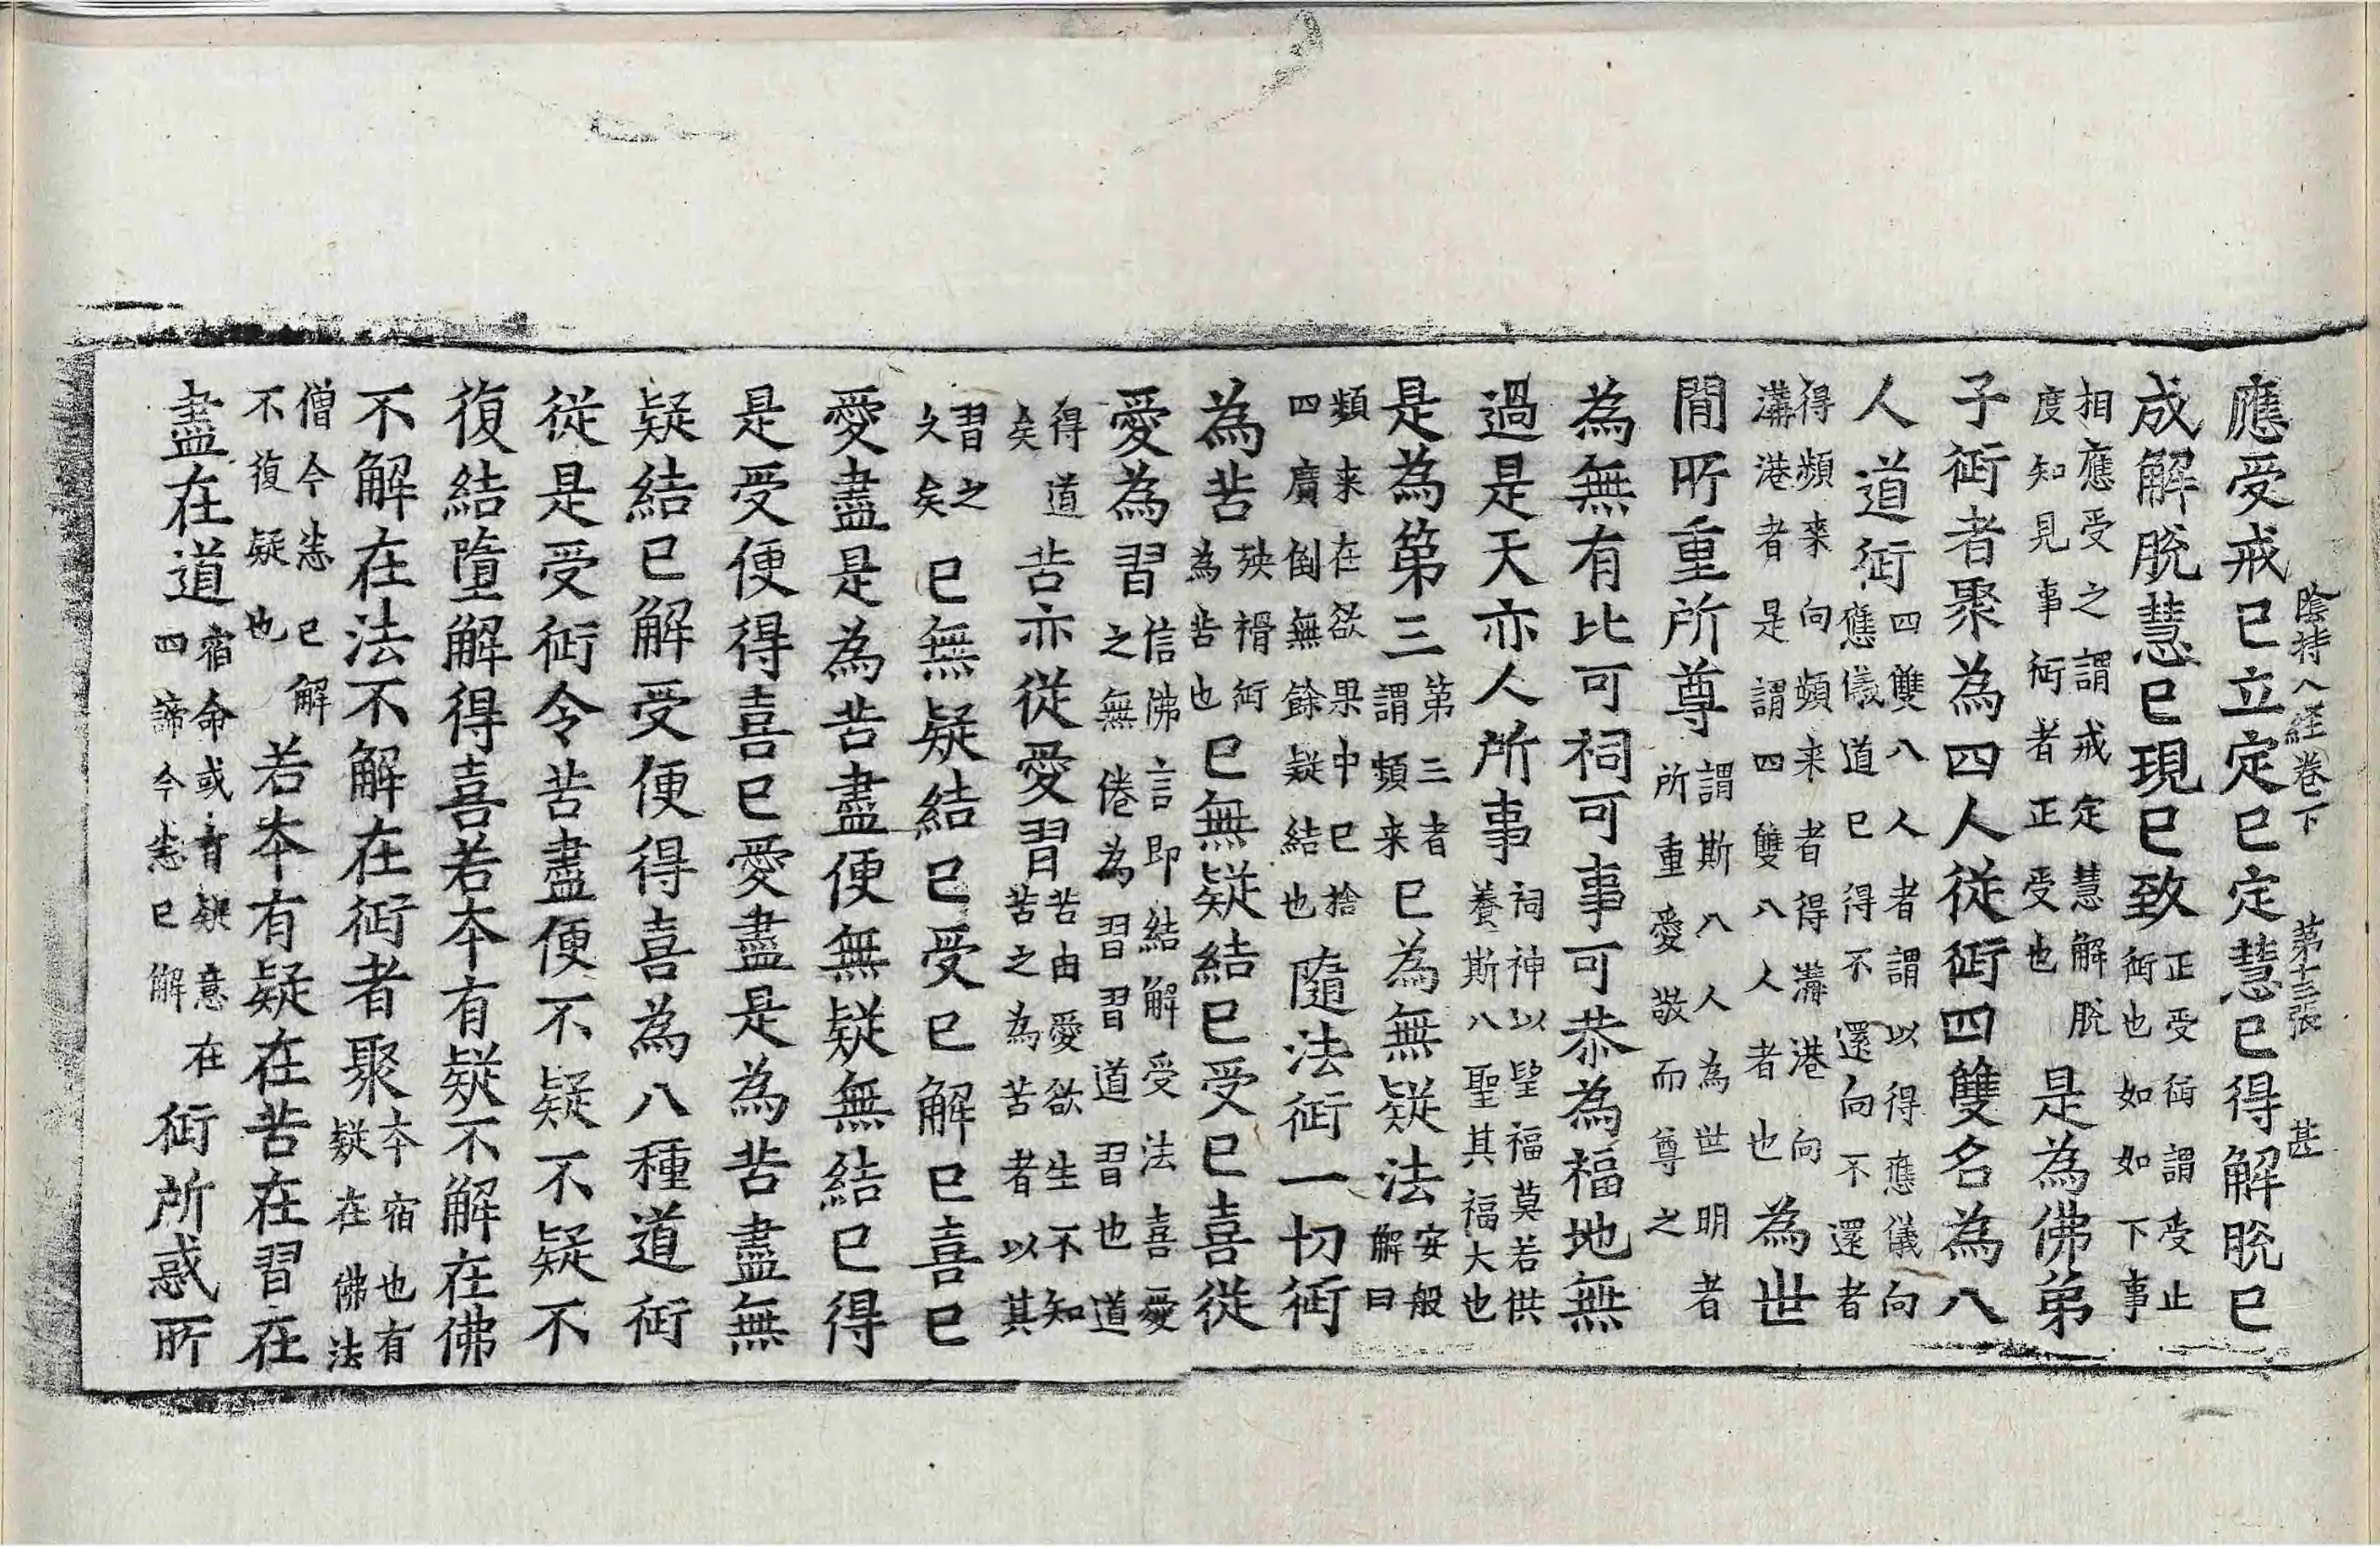 陰持入經卷下 第十三張 甚
應受戒已立定已定慧已得解脫已
成解脫慧已現已致正受術謂受止術也如如下事
相應受之謂戒定慧解脫度知見事術者正受也是為佛弟
子術者聚為四人從術四雙名為八
人道術四雙八人者謂以得應儀向應儀道已得不還向不還者
得頻来向頻来者得溝港向溝港者是謂四雙八人者也為世
閒所重所尊謂斯八人為世明者所重愛敬而尊之
為無有比可祠可事可恭為福地無
過是天亦人所事祠神以望福莫若供養斯八聖其福大也
是為第三第三者謂頻来已為無疑法安般解曰
頻来在欲果中已捨四廣倒無餘疑結也隨法術一切術
為苦殃禍術為苦也已無疑結已受已喜從
愛為習信佛言即結解受法喜愛之無倦為習習道習也道
得道矣苦亦從愛習苦由愛欲生不知苦之為苦者以其
習之久矣已無疑結已受已解已喜已
愛盡是為苦盡便無疑無結已得
是受便得喜已愛盡是為苦盡無
疑結已解受便得喜為八種道術
從是受術令苦盡便不疑不疑不
復結墮解得喜若本有疑不解在佛
不解在法不解在術者聚本宿也有疑在佛法
僧今恙已解不復疑也若本有疑在苦在習在
盡在道宿命或有疑意在四諦今恙已解術所惑所